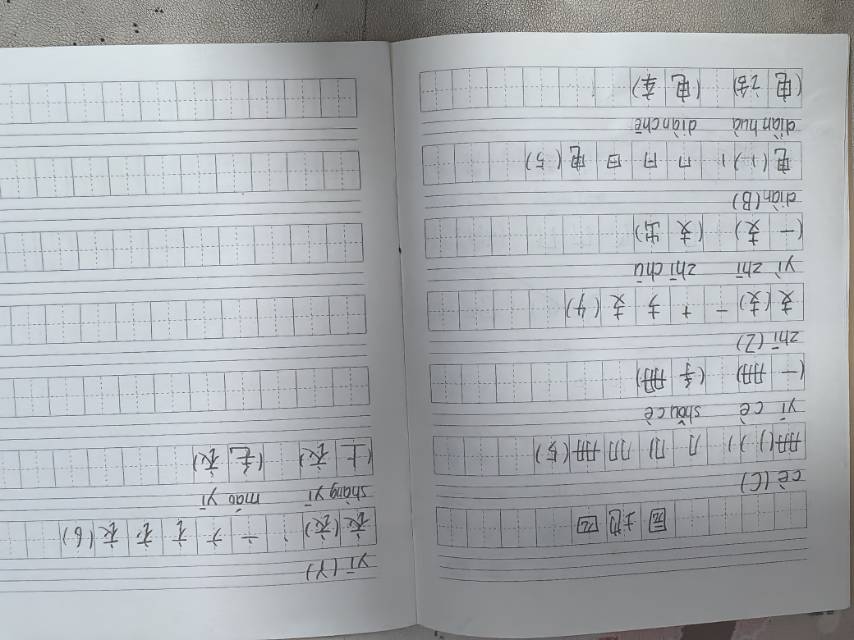 园地四
cè (C)
册 (丿) 丿 册 (5)
yī cè shǒu cè
(一册) (手册)
zhī (Z)
支 (支) 一 十 支 (4)
yì zhī zhī chū
(一支) (支出)
diàn (B)
电 (丨) 丨 冂 日 日 电 (5)
diàn huà diàn chē
(电话) (电车)
yī (Y)
衣 (衣) 丶 亠 衣 (6)
shàng yī máo yī
(上衣) (毛衣)